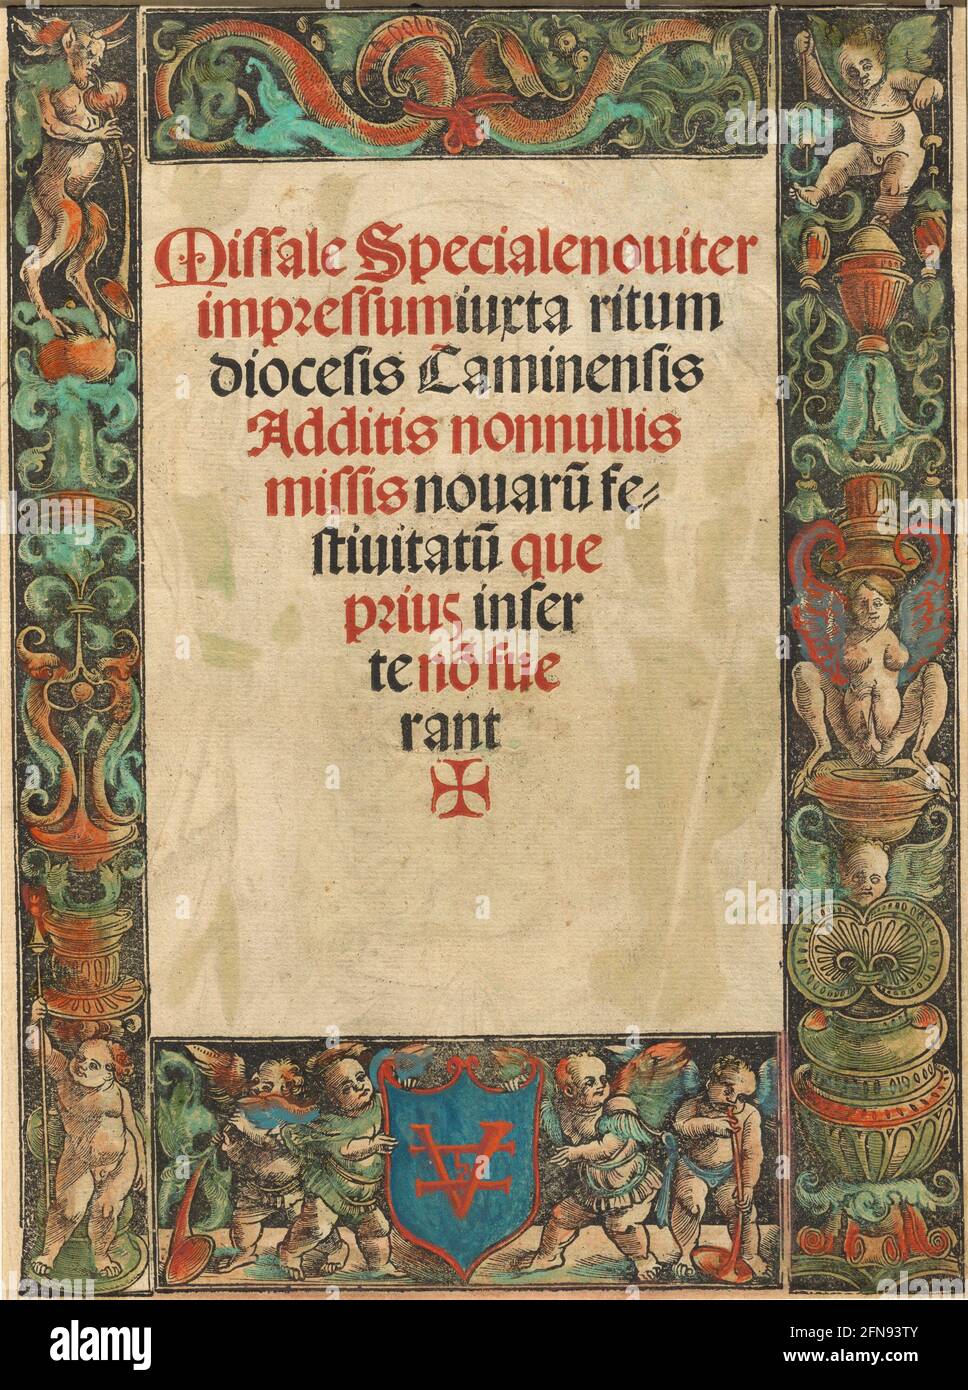 Missale Specialenouiter
impressumiuxta ritum
diocesis C̄aminensis
Additis nonnullis
missis nouarū fe⸗
stiuitatū que
priuꝫ inser
te nō fue
rant
✠
alamy
Image ID: 2FN93TY
www.alamy.com